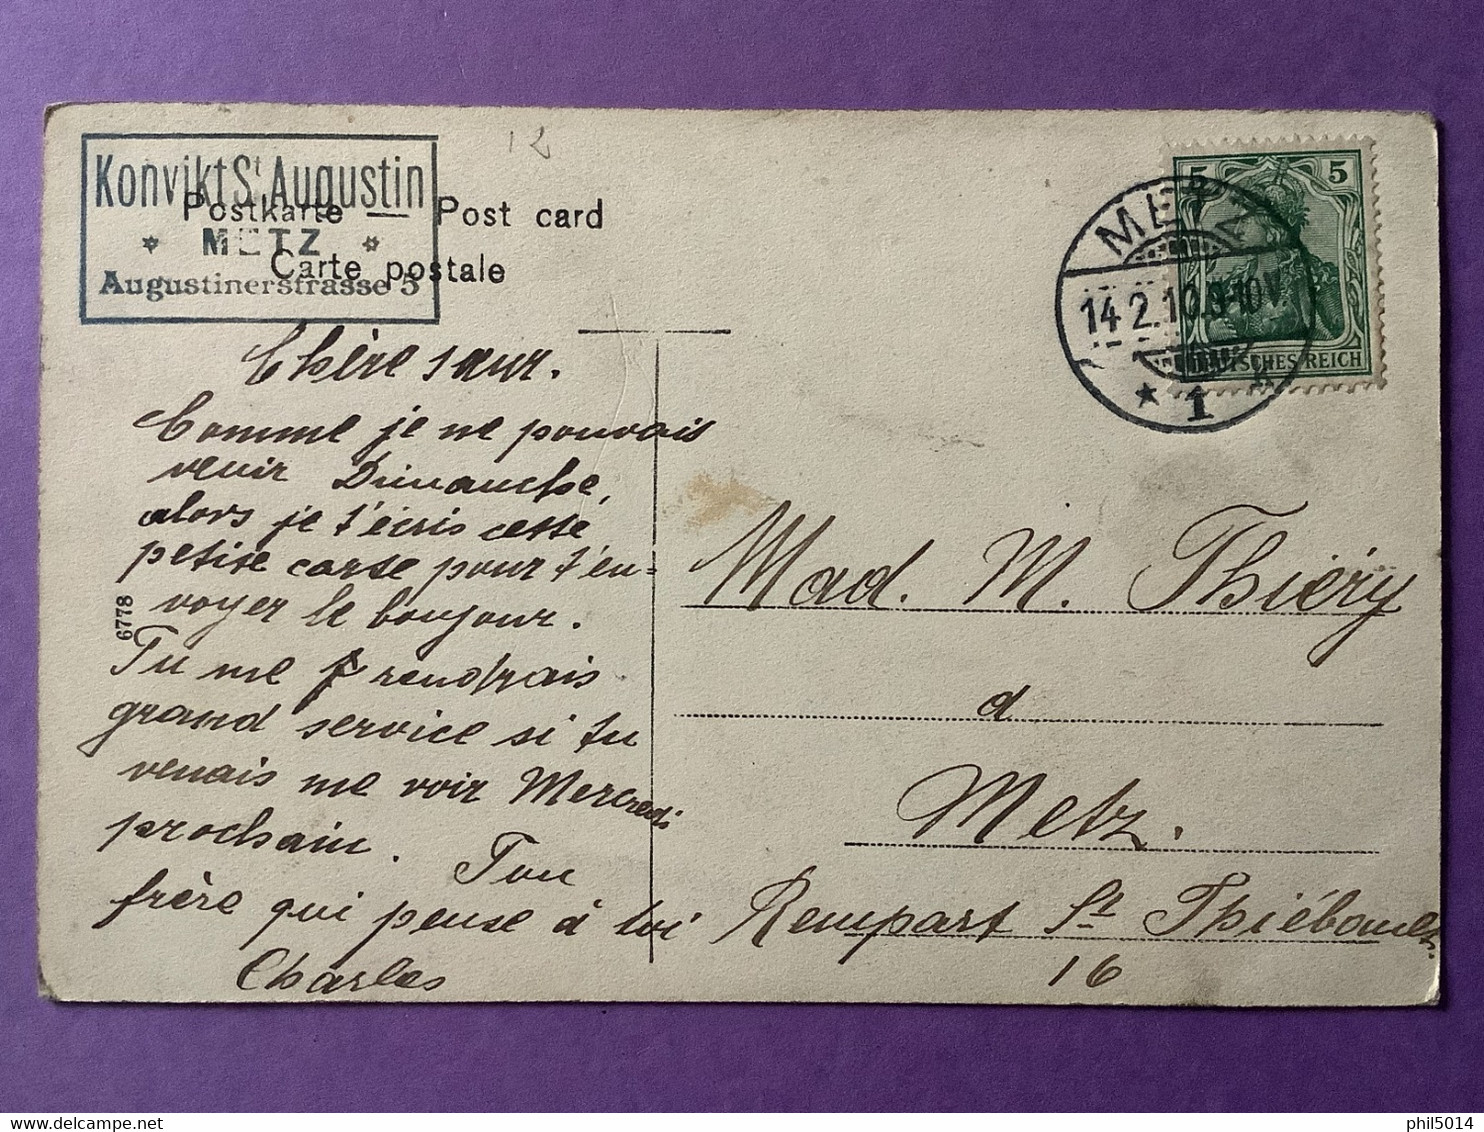 12
Konvikt St Augustin
* METZ *
Augustinerstrasse 5
Postkarte — Post card
Carte postale
5 5
DEUTSCHES REICH
METZ
14.2.10.9-10V.
* 1
Chère sœur.
Comme je ne pouvais
venir Dimanche,
alors je t'écris cette
petite carte pour t'en=
voyer le bonjour.
Tu me rendrais
grand service si tu
venais me voir Mercredi
prochain. Ton
frère qui pense à toi
Charles
6778
Mad. M. Thiéry
à
Metz.
Rempart St Thiébault.
16
phil5014